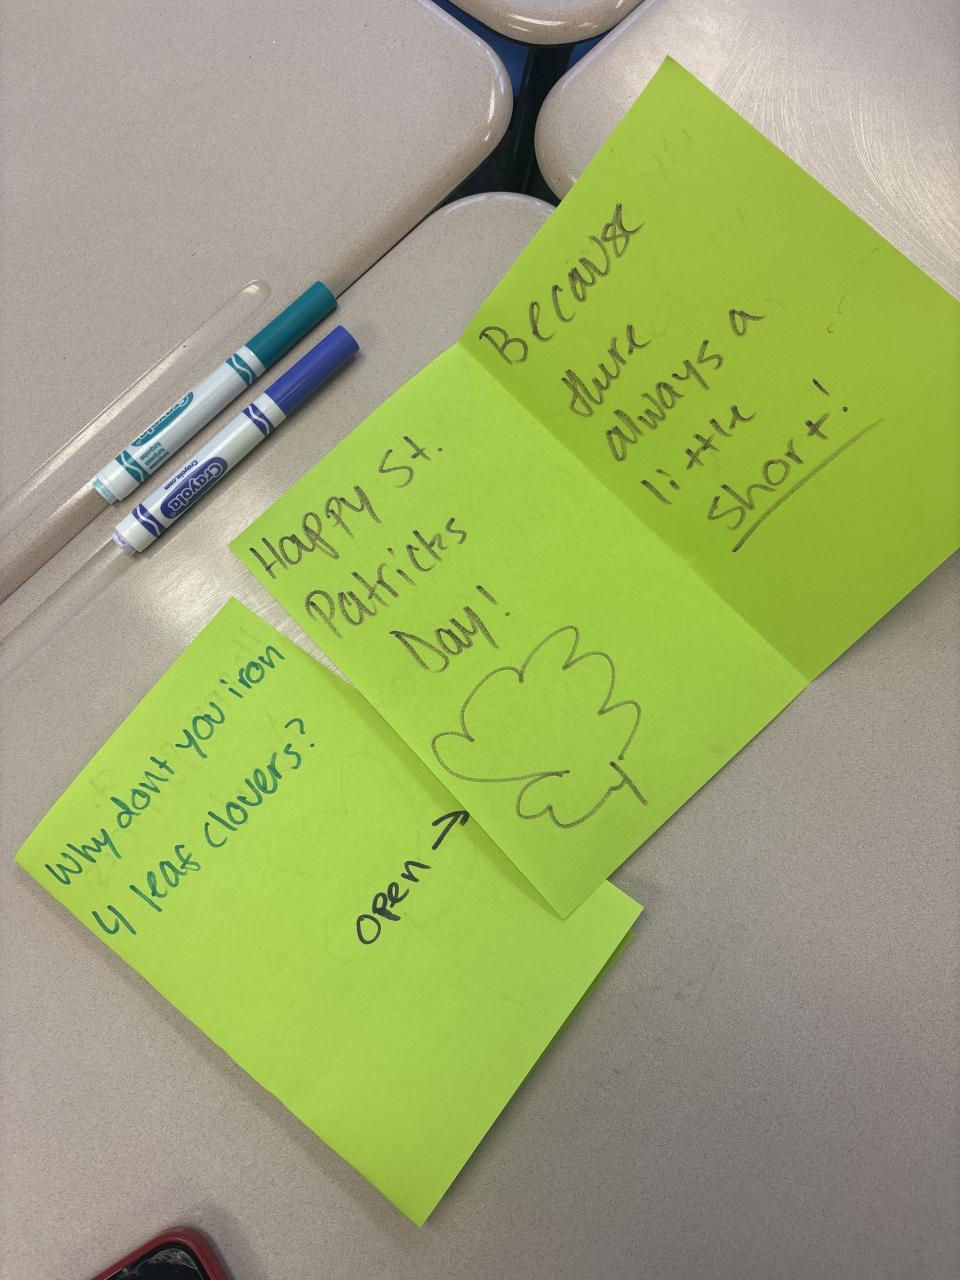 Because
there
always a
little
short!
Happy St.
Patricks
Day!
Why dont you iron
4 leaf clovers?
Open →
Crayola
Crayola
Crayola.com